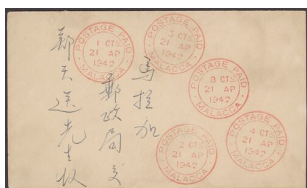 POSTAGE PAID
1 CTS
21 AP
1942
MALACCA
POSTAGE PAID
3 CTS
21 AP
1942
MALACCA
POSTAGE PAID
8 CTS
21 AP
1942
MALACCA
POSTAGE PAID
2 CTS
21 AP
1942
MALACCA
POSTAGE PAID
4 CTS
21 AP
1942
MALACCA
馬拉加
郵政局交
鄭天送先生收